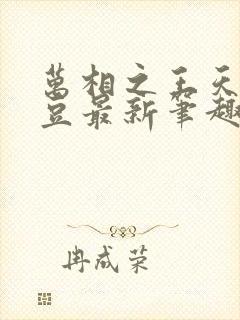 萬相之王天
豆最新筆趣
冉成荣